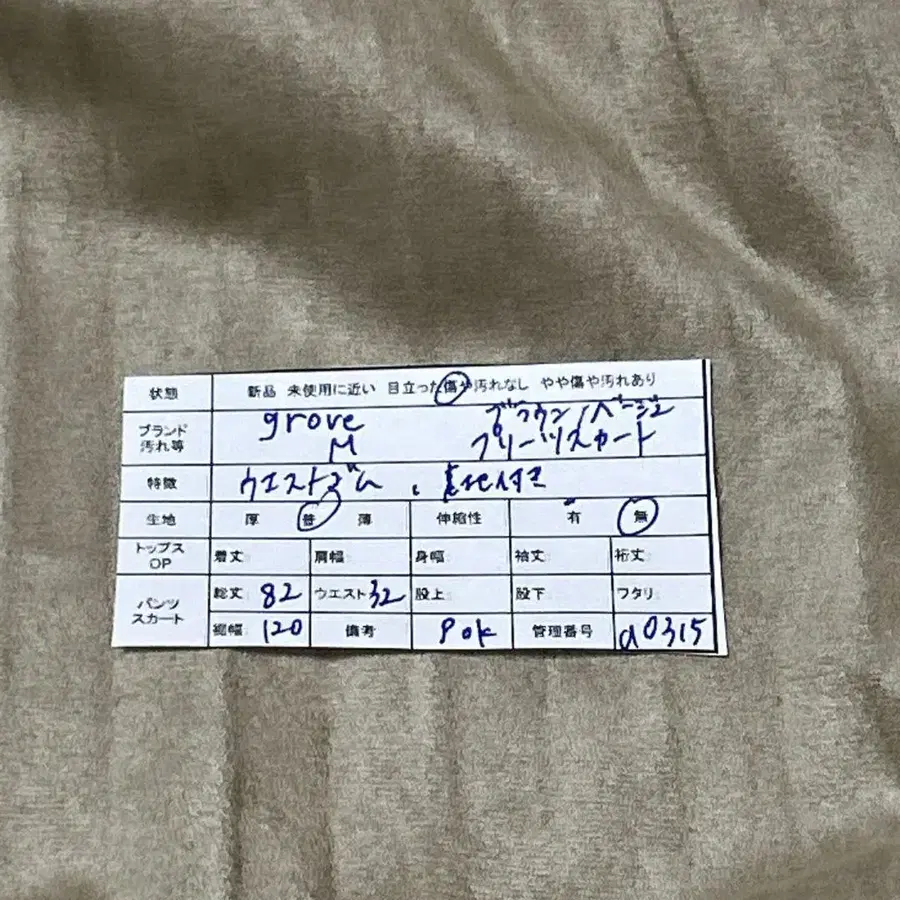 状態 新品 未使用に近い 目立った傷や汚れなし やや傷や汚れあり
ブランド 汚れ等 grove M ブラウン/ベージュ プリーツスカート
特徴 ウエストゴム、裏地付き
生地 厚 普 薄 伸縮性 有 無
トップス OP 着丈 肩幅 身幅 袖丈 裄丈
パンツ スカート 総丈 82 ウエスト 32 股上 股下 ワタリ
裾幅 120 備考 Pok 管理番号 a0315